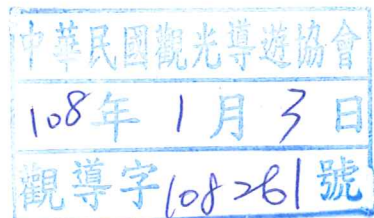 中華民國觀光導遊協會
108年1月3日
觀導字108261號